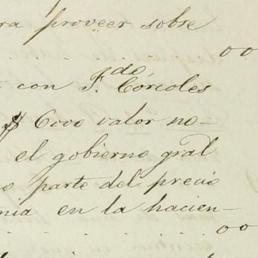 ra proveer sobre
con F.do Córcoles
$ 6000 valor no-
el gobierno gral
o parte del precio
nia en la hacien-